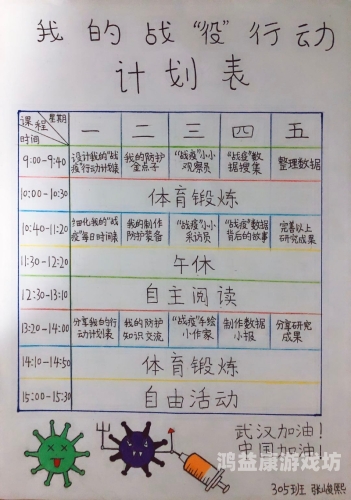 我的战“役”行动
计划表
课程 星期
时间
一 二 三 四 五
9:00-9:40 设计我的“战疫”行动计划表 我的防护金点子 “战疫”小小观察员 “战疫”数据搜集 整理数据
10:00-10:30 体育锻炼
10:40-11:20 细化我的“战疫”每日时间表 我的制作防护装备 “战疫”小小采访员 “战疫”数据背后的故事 完善以上研究成果
11:30-12:20 午休
12:30-13:10 自主阅读
13:20-14:00 分享我的行动计划表 我的防护知识交流 “战疫”手绘小作家 制作数据小报 分享研究成果
14:10-14:50 体育锻炼
15:00-15:30 自由活动
武汉加油!
中国加油!
鸿益康游戏坊
305班 张峻熙